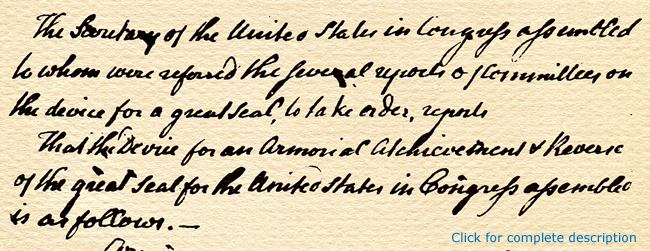 The Secretary of the United States in Congress assembled
to whom were referred the several reports of committees on
the device for a great seal, to take order, reports
That the Device for an Armorial Atchievement & Reverse
of the great seal for the United States in Congress assembled
is as follows. —
Click for complete description